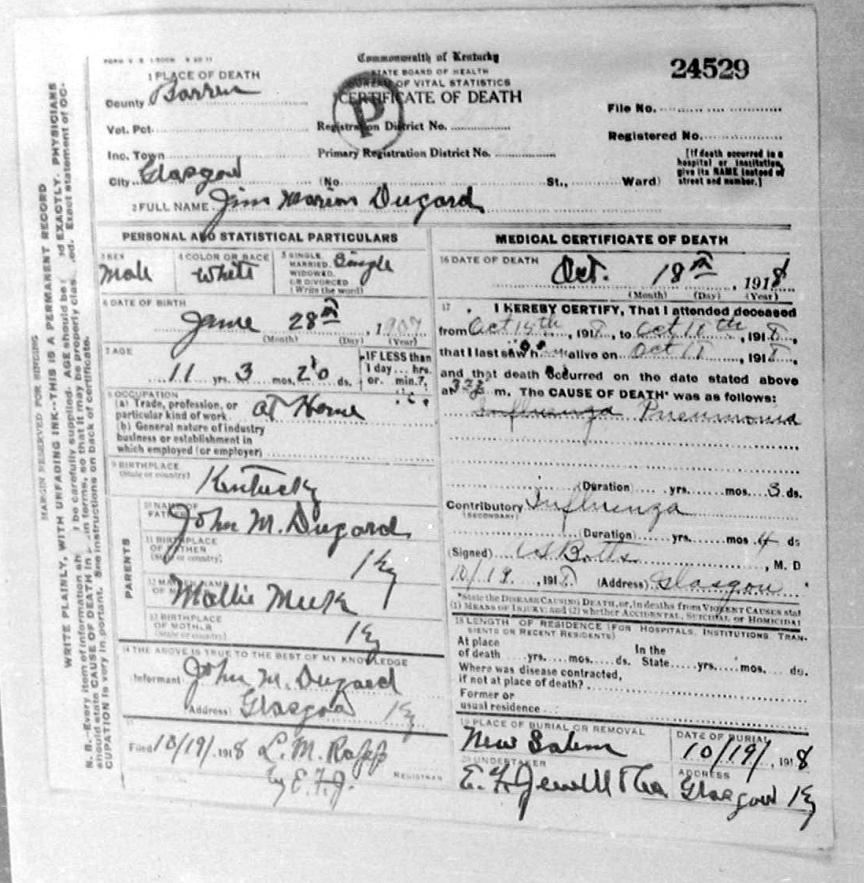 FORM V. S.
Commonwealth of Kentucky
STATE BOARD OF HEALTH
BUREAU OF VITAL STATISTICS
CERTIFICATE OF DEATH
24529
P
1 PLACE OF DEATH
County Barren
Vot. Pct.
Inc. Town
City Glasgow (No. St., Ward)
Registration District No.
Primary Registration District No.
File No.
Registered No.
[If death occurred in a
hospital or institution,
give its NAME instead of
street and number.]
2 FULL NAME Jim Marion Dugard
PERSONAL AND STATISTICAL PARTICULARS
3 SEX
Male
4 COLOR OR RACE
White
5 SINGLE,
MARRIED,
WIDOWED,
OR DIVORCED
(Write the word)
Single
6 DATE OF BIRTH
June 28th, 1907
(Month) (Day) (Year)
7 AGE
11 yrs. 3 mos. 20 ds.
IF LESS than
1 day... hrs.
or... min.?
8 OCCUPATION
(a) Trade, profession, or
particular kind of work At Home
(b) General nature of industry
business or establishment in
which employed (or employer)
9 BIRTHPLACE
(State or country)
Kentucky
PARENTS
10 NAME OF
FATHER
John M. Dugard
11 BIRTHPLACE
OF FATHER
(State or country)
Ky
12 MAIDEN NAME
OF MOTHER
Mollie Meek
13 BIRTHPLACE
OF MOTHER
(State or country)
Ky
14 THE ABOVE IS TRUE TO THE BEST OF MY KNOWLEDGE
Informant John M. Dugard
(Address) Glasgow Ky
15
Filed 10/19/ 1918 L. M. Rapp
by E. F. J. REGISTRAR
MEDICAL CERTIFICATE OF DEATH
16 DATE OF DEATH
Oct. 18th, 1918
(Month) (Day) (Year)
17 I HEREBY CERTIFY, That I attended deceased
from Oct 14th, 1918, to Oct 18th, 1918,
that I last saw h alive on Oct 18, 1918,
and that death occurred on the date stated above
at m. The CAUSE OF DEATH* was as follows:
Influenza Pneumonia
(Duration) yrs. mos. 3 ds.
Contributory Influenza
(SECONDARY)
(Duration) yrs. mos. 4 ds
(Signed) Botts, M. D
10/19, 1918 (Address) Glasgow
*State the DISEASE CAUSING DEATH, or, in deaths from VIOLENT CAUSES stat
(1) MEANS OF INJURY; and (2) whether ACCIDENTAL, SUICIDAL or HOMICIDAL
18 LENGTH OF RESIDENCE (FOR HOSPITALS, INSTITUTIONS, TRAN-
SIENTS OR RECENT RESIDENTS)
At place
of death yrs. mos. ds.
In the
State yrs. mos. ds.
Where was disease contracted,
if not at place of death?
Former or
usual residence
19 PLACE OF BURIAL OR REMOVAL
New Salem
DATE OF BURIAL
10/19/, 1918
20 UNDERTAKER
E. F. Jewell
ADDRESS
Glasgow Ky
MARGIN RESERVED FOR BINDING
WRITE PLAINLY, WITH UNFADING INK--THIS IS A PERMANENT RECORD
N. B.--Every item of information sh be carefully supplied. AGE should be EXACTLY. PHYSICIANS
should state CAUSE OF DEATH in forms, so that it may be properly clas ed. Exact statement of OC-
CUPATION is very important. See instructions on back of certificate.